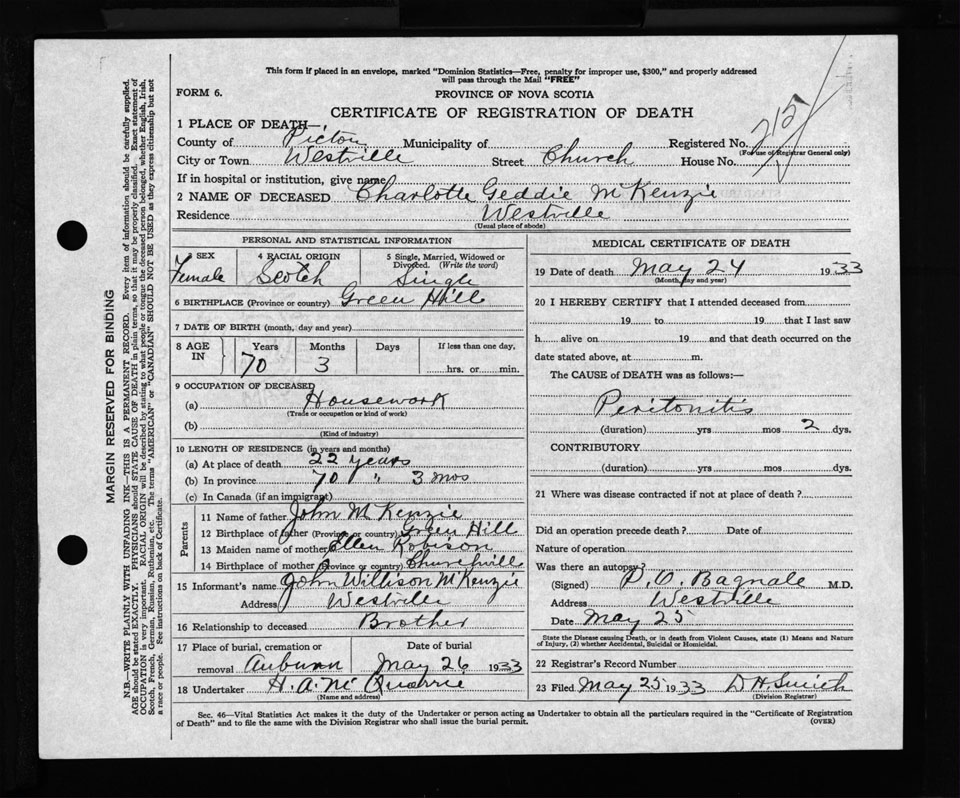 This form if placed in an envelope, marked "Dominion Statistics—Free, penalty for improper use, $300," and properly addressed
will pass through the Mail "FREE"
FORM 6.
PROVINCE OF NOVA SCOTIA
CERTIFICATE OF REGISTRATION OF DEATH
1 PLACE OF DEATH—
County of Pictou Municipality of Registered No. 215
(For use of Registrar General only)
City or Town Westville Street Church House No.
If in hospital or institution, give name
2 NAME OF DECEASED Charlotte Geddie McKenzie
Residence Westville
(Usual place of abode)
PERSONAL AND STATISTICAL INFORMATION
3 SEX Female
4 RACIAL ORIGIN Scotch
5 Single, Married, Widowed or Divorced. (Write the word) Single
6 BIRTHPLACE (Province or country) Green Hill
7 DATE OF BIRTH (month, day and year)
8 AGE IN Years 70 Months 3 Days If less than one day, hrs. or min.
9 OCCUPATION OF DECEASED
(a) Housework
(Trade or occupation or kind of work)
(b)
(Kind of industry)
10 LENGTH OF RESIDENCE (in years and months)
(a) At place of death 22 years
(b) In province 70 " 3 mos
(c) In Canada (if an immigrant)
Parents
11 Name of father John McKenzie
12 Birthplace of father (Province or country) Green Hill
13 Maiden name of mother Ellen Robison
14 Birthplace of mother (Province or country) Churchville
15 Informant's name John Willison McKenzie
Address Westville
16 Relationship to deceased Brother
17 Place of burial, cremation or removal Auburn Date of burial May 26 1933
18 Undertaker H. A. McQuarrie
(Name and address)
MEDICAL CERTIFICATE OF DEATH
19 Date of death May 24 1933
(Month, day and year)
20 I HEREBY CERTIFY that I attended deceased from
19 to 19 that I last saw
h alive on 19 and that death occurred on the
date stated above, at m.
The CAUSE of DEATH was as follows:—
Peritonitis
(duration) yrs mos 2 dys.
CONTRIBUTORY
(duration) yrs mos dys.
21 Where was disease contracted if not at place of death?
Did an operation precede death? Date of
Nature of operation
Was there an autopsy?
(Signed) P. O. Bagnall M.D.
Address Westville
Date May 25
State the Disease causing Death, or in death from Violent Causes, state (1) Means and Nature
of Injury, (2) whether Accidental, Suicidal or Homicidal.
22 Registrar's Record Number
23 Filed May 25 1933 D H Smith
(Division Registrar)
Sec. 46—Vital Statistics Act makes it the duty of the Undertaker or person acting as Undertaker to obtain all the particulars required in the "Certificate of Registration
of Death" and to file the same with the Division Registrar who shall issue the burial permit.
(OVER)
MARGIN RESERVED FOR BINDING
N.B.—WRITE PLAINLY WITH UNFADING INK—THIS IS A PERMANENT RECORD. Every item of information should be carefully supplied.
AGE should be stated EXACTLY. PHYSICIANS should STATE CAUSE OF DEATH in plain terms, so that it may be properly classified. Exact statement of
OCCUPATION is very important. RACIAL ORIGIN will be described by stating to what people or tongue the deceased person belonged, whether English, Irish,
Scotch, French, German, Russian, Ruthenian, etc. The terms "AMERICAN" or "CANADIAN" SHOULD NOT BE USED as they express citizenship but not
a race or people. See instructions on back of Certificate.